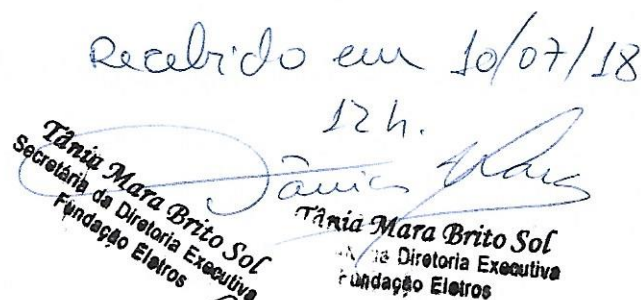 Recebido em 10/07/18
12h.
Tânia Mara
Tânia Mara Brito Sol
Secretária da Diretoria Executiva
Fundação Eletros
Tânia Mara Brito Sol
da Diretoria Executiva
Fundação Eletros